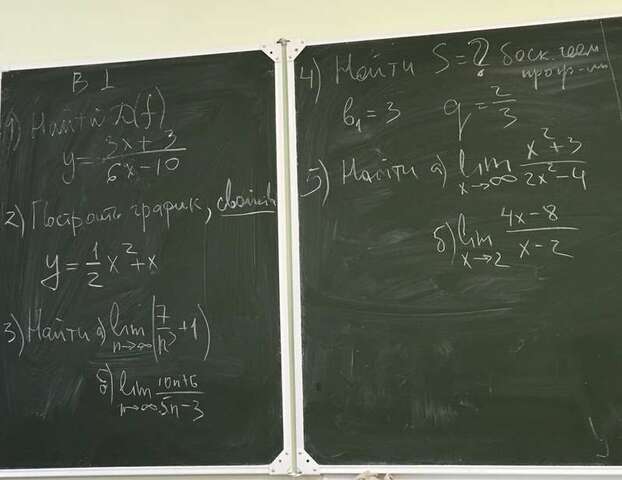 В 1
1) Найти D(f)
y = (3x + 3)/(6x - 10)
2) Построить график, свойства
y = 1/2 x² + x
3) Найти а) lim n→∞ (7/n³ + 1)
б) lim n→∞ (10n+6)/(5n-3)
4) Найти S = ? беск. геом
прогр-ии
b₁ = 3 q = 2/3
5) Найти а) lim x→∞ (x² + 3)/(2x² - 4)
б) lim x→2 (4x - 8)/(x - 2)